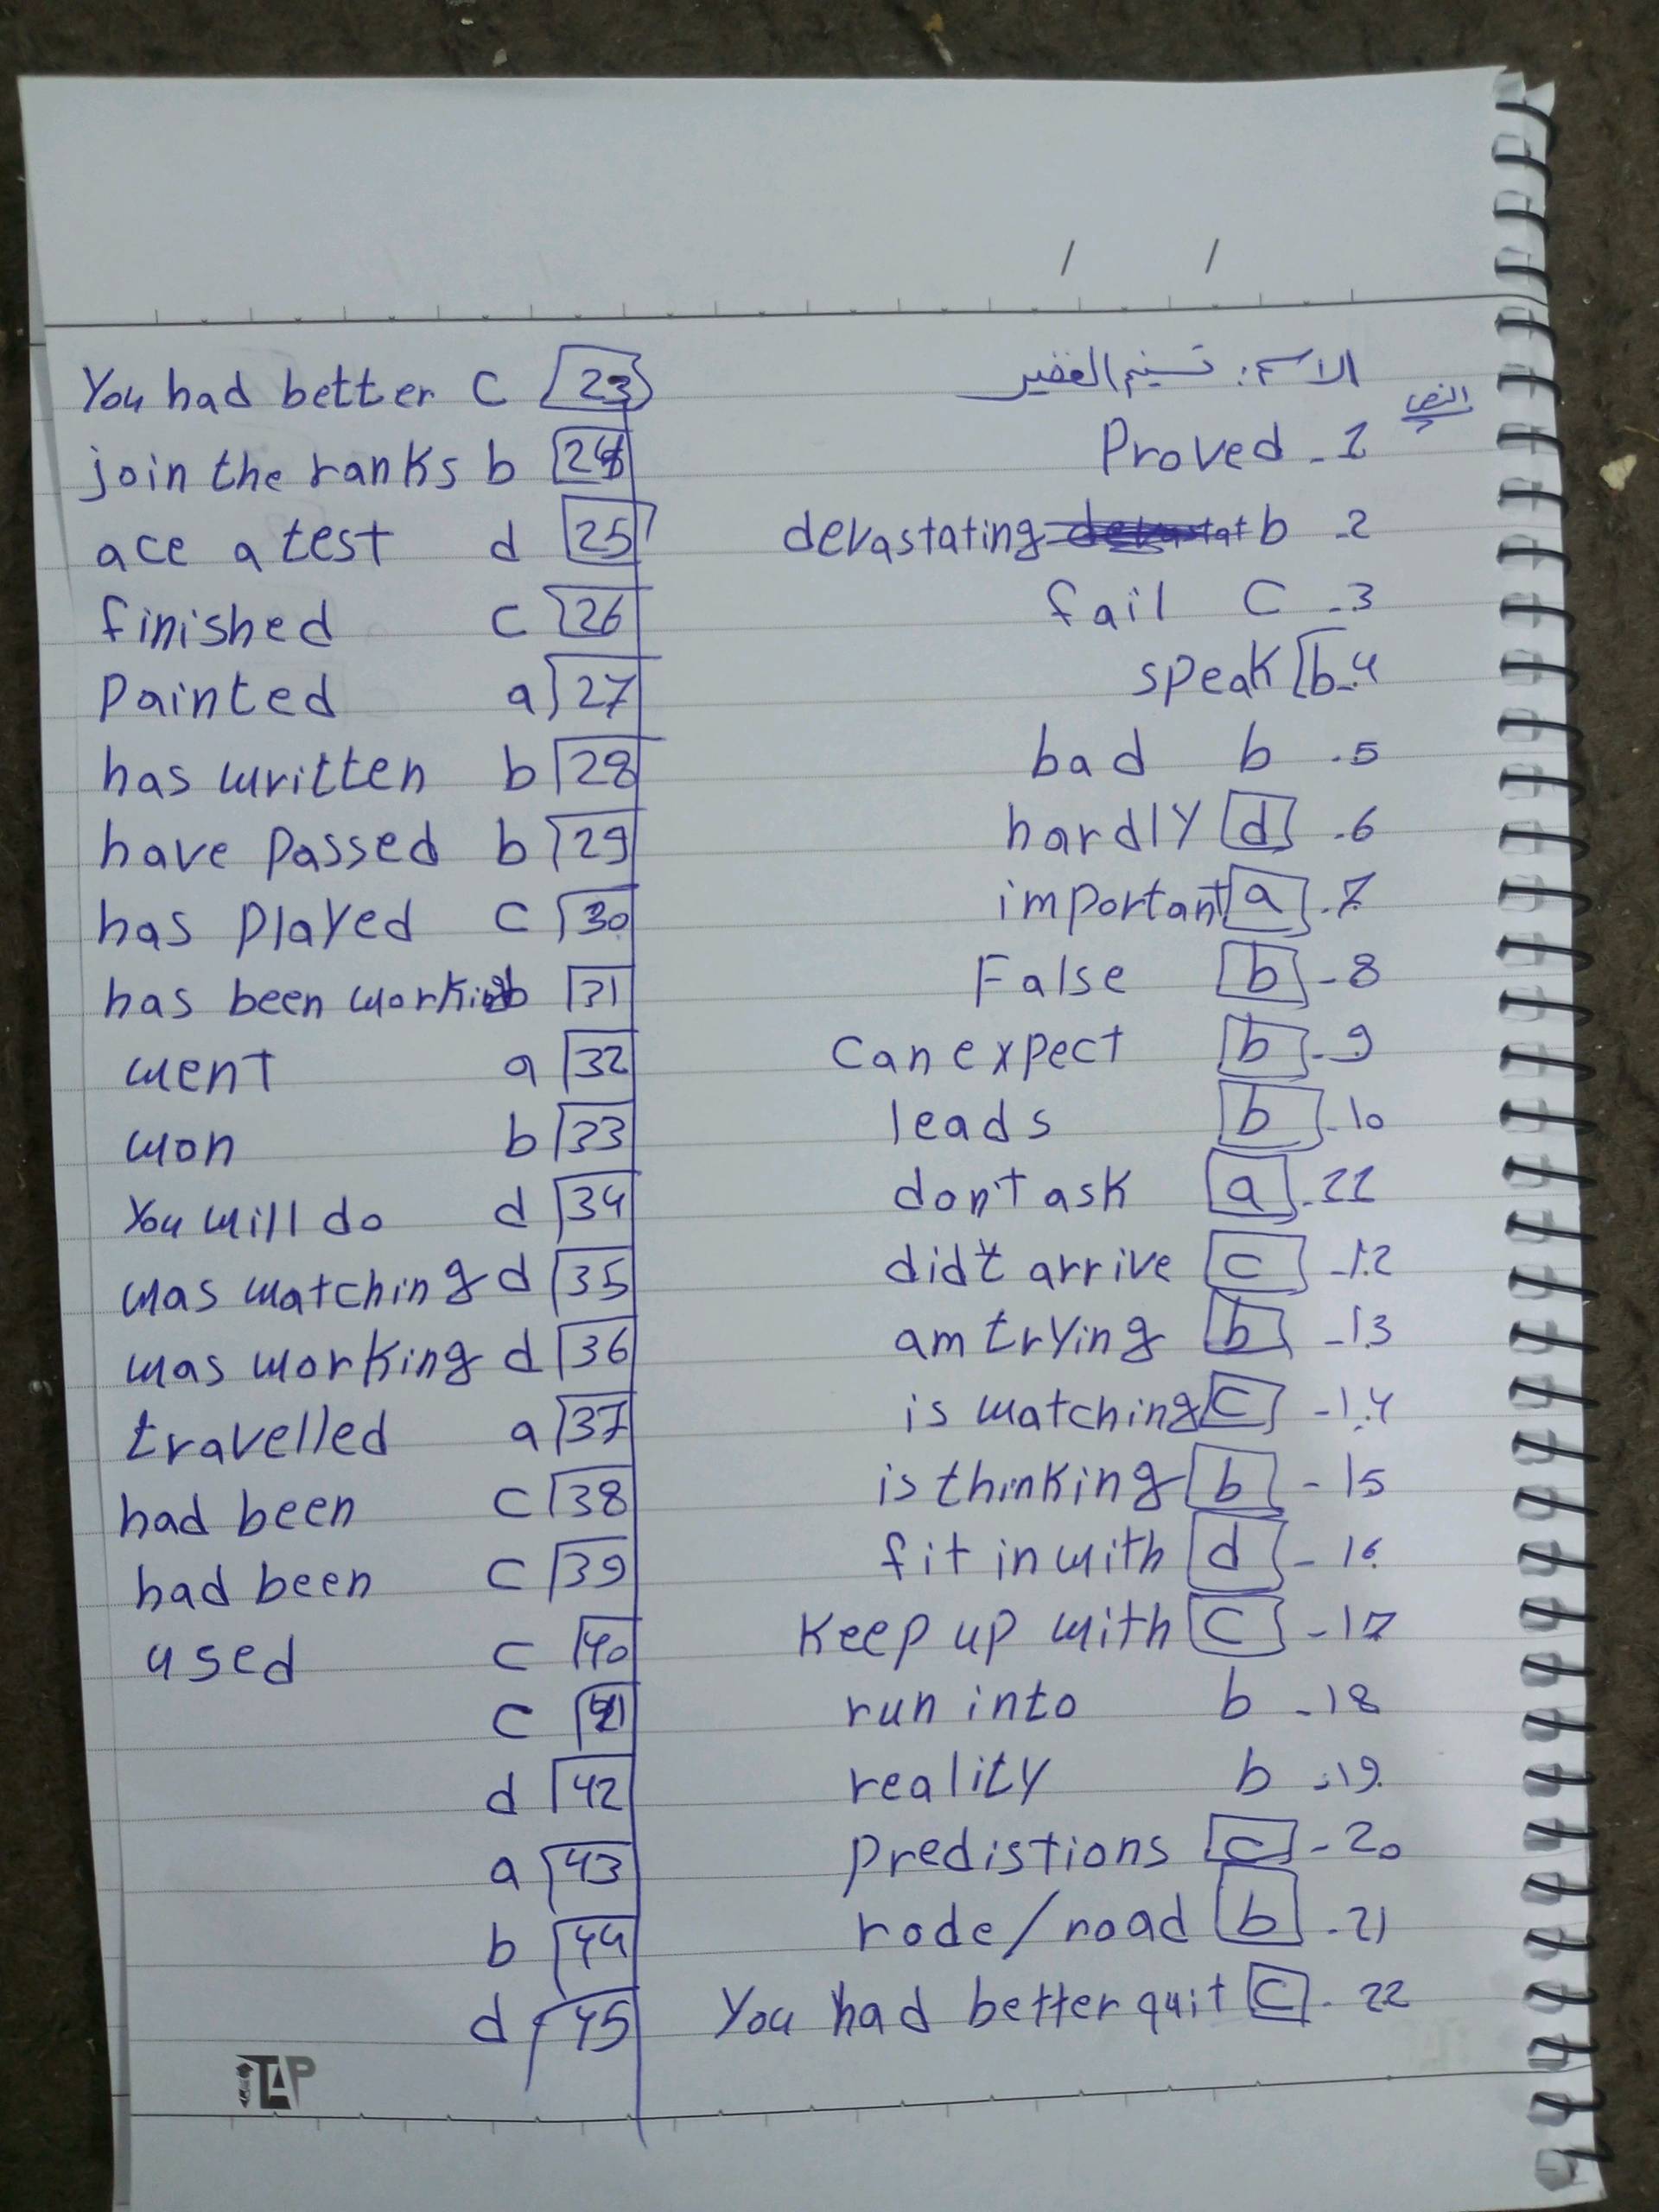 الاسم: تسنيم الغفير
النص
Proved - 1
devastating b - 2
fail c - 3
speak b - 4
bad b . 5
hardly d - 6
important a . 7
False b - 8
Can expect b - 9
leads b - 10
don't ask a . 11
did't arrive c - 12
am trying b - 13
is watching c - 14
is thinking b - 15
fit in with d - 16
Keep up with c - 17
run into b - 18
reality b - 19
predistions c - 20
rode/road b - 21
You had better quit c . 22
You had better c 23
join the ranks b 24
ace a test d 25
finished c 26
Painted a 27
has written b 28
have passed b 29
has played c 30
has been working b 31
went a 32
won b 33
You will do d 34
was watching d 35
was working d 36
travelled a 37
had been c 38
had been c 39
used c 40
c 41
d 42
a 43
b 44
d 45
TAP